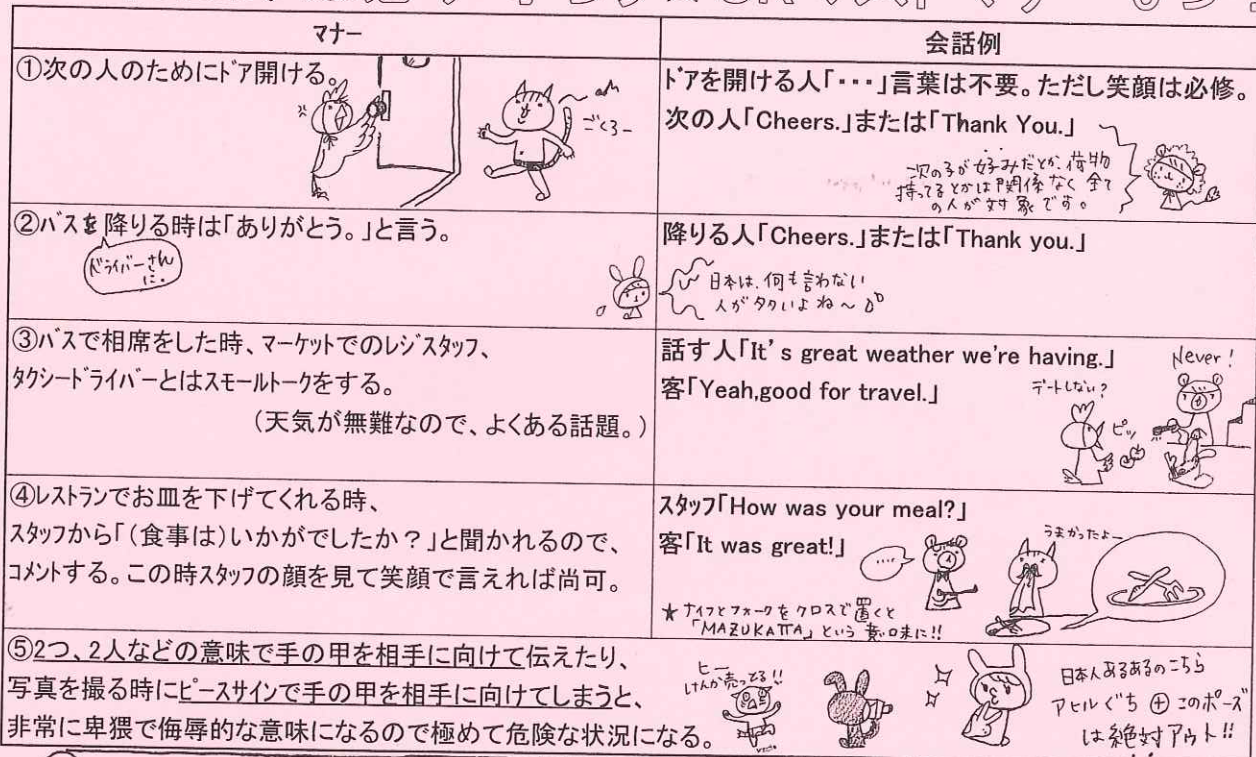 マナー
会話例
①次の人のためにドア開ける。
ごくろー
ドアを開ける人「・・・」言葉は不要。ただし笑顔は必修。
次の人「Cheers.」または「Thank You.」
次の子が好みだとか、荷物
持ってるとかは関係なく全て
の人が対象です。
②バスを降りる時は「ありがとう。」と言う。
ドライバーさん
に。
降りる人「Cheers.」または「Thank you.」
日本は、何も言わない
人が多いよね～
③バスで相席をした時、マーケットでのレジスタッフ、
タクシードライバーとはスモールトークをする。
(天気が無難なので、よくある話題。)
話す人「It's great weather we're having.」
客「Yeah,good for travel.」
Never!
デートしない?
ピッ
④レストランでお皿を下げてくれる時、
スタッフから「(食事は)いかがでしたか?」と聞かれるので、
コメントする。この時スタッフの顔を見て笑顔で言えれば尚可。
スタッフ「How was your meal?」
客「It was great!」
....
うまかったよー
★ナイフとフォークをクロスで置くと
「MAZUKATTA」という意味に!!
⑤2つ、2人などの意味で手の甲を相手に向けて伝えたり、
写真を撮る時にピースサインで手の甲を相手に向けてしまうと、
非常に卑猥で侮辱的な意味になるので極めて危険な状況になる。
ヒー
けんか売ってる!!
日本人あるあるのこちら
アヒルぐち⊕このポーズ
は絶対アウト!!